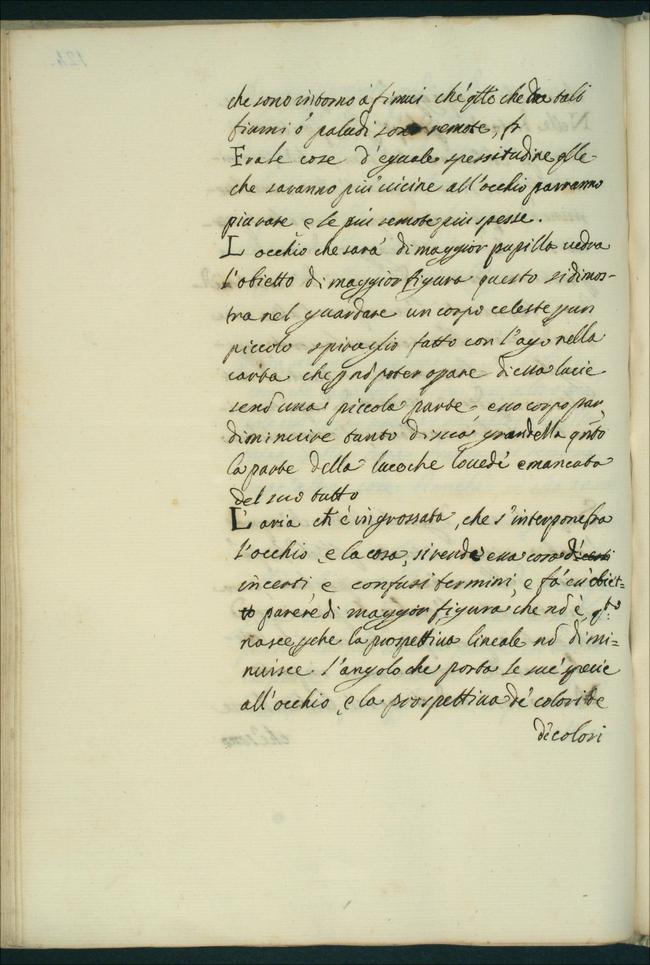 che sono intorno á fiumi che qllo che da tali
fiumi o' paludi sono remote, fr
Frale cose d'eguale spessitudine qlle
che saranno più uicine all'occhio parranno
piu rare e le piu remote piu spesse.
L occhio che sara' di maggior pupilla uedra
l'obietto di maggior figura questo si dimos-
tra nel guardare un corpo celeste p un
piccolo spiraglio fatto con l'ago nella
carta che p nõ poter oprare di essa lucie
senõ una piccola parte, esso corpo par,
diminuire tanto di sua grandezza qñto
la parte della luce che lo uede e mancata
del suo tutto
L'aria ch è ingrossata, che s'interpone fra
l'occhio, e la cosa, si rende essa cosa d'
incerti e confusi termini, e fà obiet-
to parere di maggior figura che nõ è, qto
nasce pche la prospettiua lineale nõ dimi-
nuisce l'angolo che porta le sue specie
all'occhio, e la prospettiua de' colori
de' colori